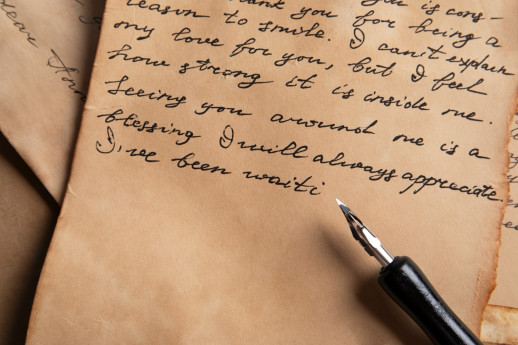 dear
thank you for is cons-
reason to smile. for being a
my love for you, I can't explain
how strong it is inside me. but I feel
Seeing you around me is a
blessing I will always appreciate.
I've been waiti